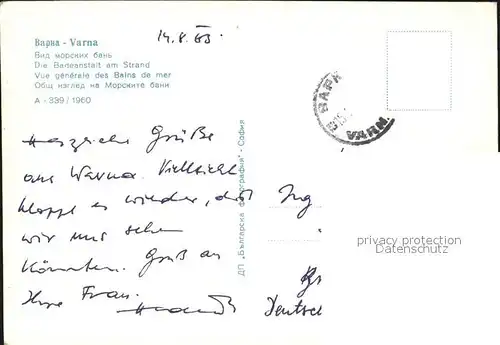 14.8.63
Варна - Varna
Вид морских бань
Die Badeanstalt am Strand
Vue générale des Bains de mer
Общ изглед на Морските бани
A - 339/1960
Herzliche Grüße
aus Warna. Vielleicht
klappt es wieder, daß
wir uns sehen
könnten. Gruß an
Ihre Frau.
ДП „Българска фотография" - София
ВАРН
VARN.
Ing
Deutscl
privacy protection
Datenschutz